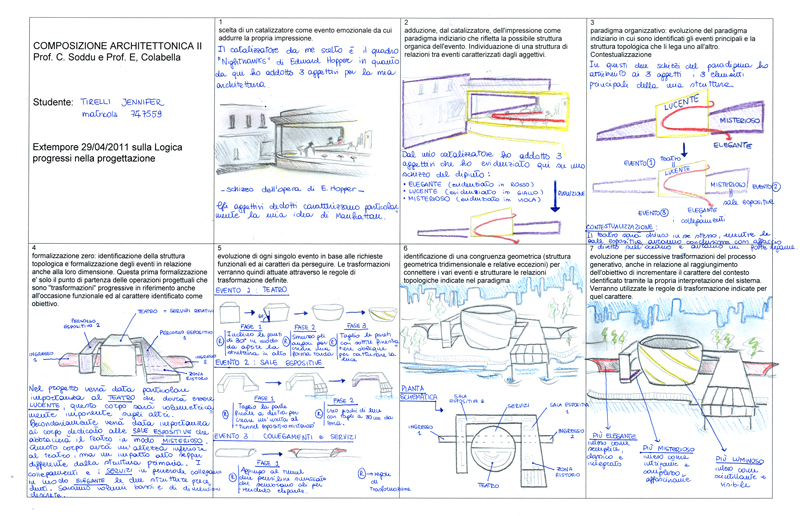 COMPOSIZIONE ARCHITETTONICA II
Prof. C. Soddu e Prof. E, Colabella
Studente: TIRELLI JENNIFER
matricola 747559
Extempore 29/04/2011 sulla Logica
progressi nella progettazione
1
scelta di un catalizzatore come evento emozionale da cui
addurre la propria impressione.
Il catalizzatore da me scelto è il quadro
"Nighthawks" di Edward Hopper in quanto
da qui ho addotto 3 aggettivi per la mia
architettura.
- schizzo dell'opera di E. Hopper -
Gli aggettivi dedotti caratterizzano particolar
mente la mia idea di Manhattan.
2
adduzione, dal catalizzatore, dell'impressione come
paradigma indiziario che rifletta la possibile struttura
organica dell'evento. Individuazione di una struttura di
relazioni tra eventi caratterizzati dagli aggettivi.
Dal mio catalizzatore ho addotto 3
aggettivi che ho evidenziato qui su uno
schizzo del dipinto:
• ELEGANTE (evidenziato in ROSSO)
• LUCENTE (evidenziato in GIALLO)
• MISTERIOSO (evidenziato in VIOLA)
EVOLUZIONE
3
paradigma organizzativo: evoluzione del paradigma
indiziario in cui sono identificati gli eventi principali e la
struttura topologica che li lega uno all'altro.
Contestualizzazione
In questi due schizzi del paradigma ho
attribuito ai 3 aggettivi, i 3 elementi
principali della mia struttura.
LUCENTE
MISTERIOSO
ELEGANTE
EVENTO 1
TEATRO
LUCENTE
MISTERIOSO
EVENTO 2
sale espositive
ELEGANTE
EVENTO 3
collegamenti
CONTESTUALIZZAZIONE:
Il teatro sarà chiuso in se stesso, mentre le
sale espositive
4
formalizzazione zero: identificazione della struttura
topologica e formalizzazione degli eventi in relazione
anche alla loro dimensione. Questa prima formalizzazione
e' solo il punto di partenza delle operazioni progettuali che
sono "trasformazioni" progressive in riferimento anche
all'occasione funzionale ed al carattere identificato come
obiettivo.
TEATRO + SERVIZI RELATIVI
PERCORSO
ESPOSITIVO 2
PERCORSO ESPOSITIVO
1
INGRESSO
1
INGRESSO
2
ZONA
RISTORO
Nel progetto verrà data particolare
importanza al TEATRO che dovrà essere
LUCENTE, questo corpo sarà volumetrica
mente imponente sugli altri.
Secondariamente verrà data importanza
al corpo dedicato alle SALE ESPOSITIVE che
abbraccia il teatro in modo MISTERIOSO.
Questo corpo avrà un'altezza inferiore
al teatro, ma un impatto allo
differente dalla struttura primaria. I
collegamenti e i SERVIZI in generale collegano
in modo ELEGANTE le due strutture prece
denti. Saranno volumi bassi e di dimensioni
discrete.
5
evoluzione di ogni singolo evento in base alle richieste
funzionali ed ai caratteri da perseguire. Le trasformazioni
verranno quindi attuate attraverso le regole di
trasformazione definite.
EVENTO 1: TEATRO
FASE 1
FASE 2
FASE 3
EVENTO 2: SALE ESPOSITIVE
FASE 1
FASE 2
EVENTO 3 COLLEGAMENTI E SERVIZI
FASE 1
R → regole di
trasformazione
6
identificazione di una congruenza geometrica (struttura
geometrica tridimensionale e relative eccezioni) per
connettere i vari eventi e strutturare le relazioni
topologiche indicate nel paradigma
PIANTA
SCHEMATICA
SALA
ESPOSITIVA 2
SERVIZI
SALA ESPOSITIVA
1
INGRESSO
1
INGRESSO
2
TEATRO
ZONA
RISTORO
7
evoluzione per successive trasformazioni del processo
generativo, anche in relazione al raggiungimento
dell'obiettivo di incrementare il carattere del contesto
identificato tramite la propria interpretazione del sistema.
Verranno utilizzate le regole di trasformazione indicate per
quel carattere.
PIÙ ELEGANTE
inteso come
semplice,
classico e
integrato
PIÙ MISTERIOSO
inteso come
intrigante e
complesso,
affascinante
PIÙ LUMINOSO
inteso come
scintillante e
visibile